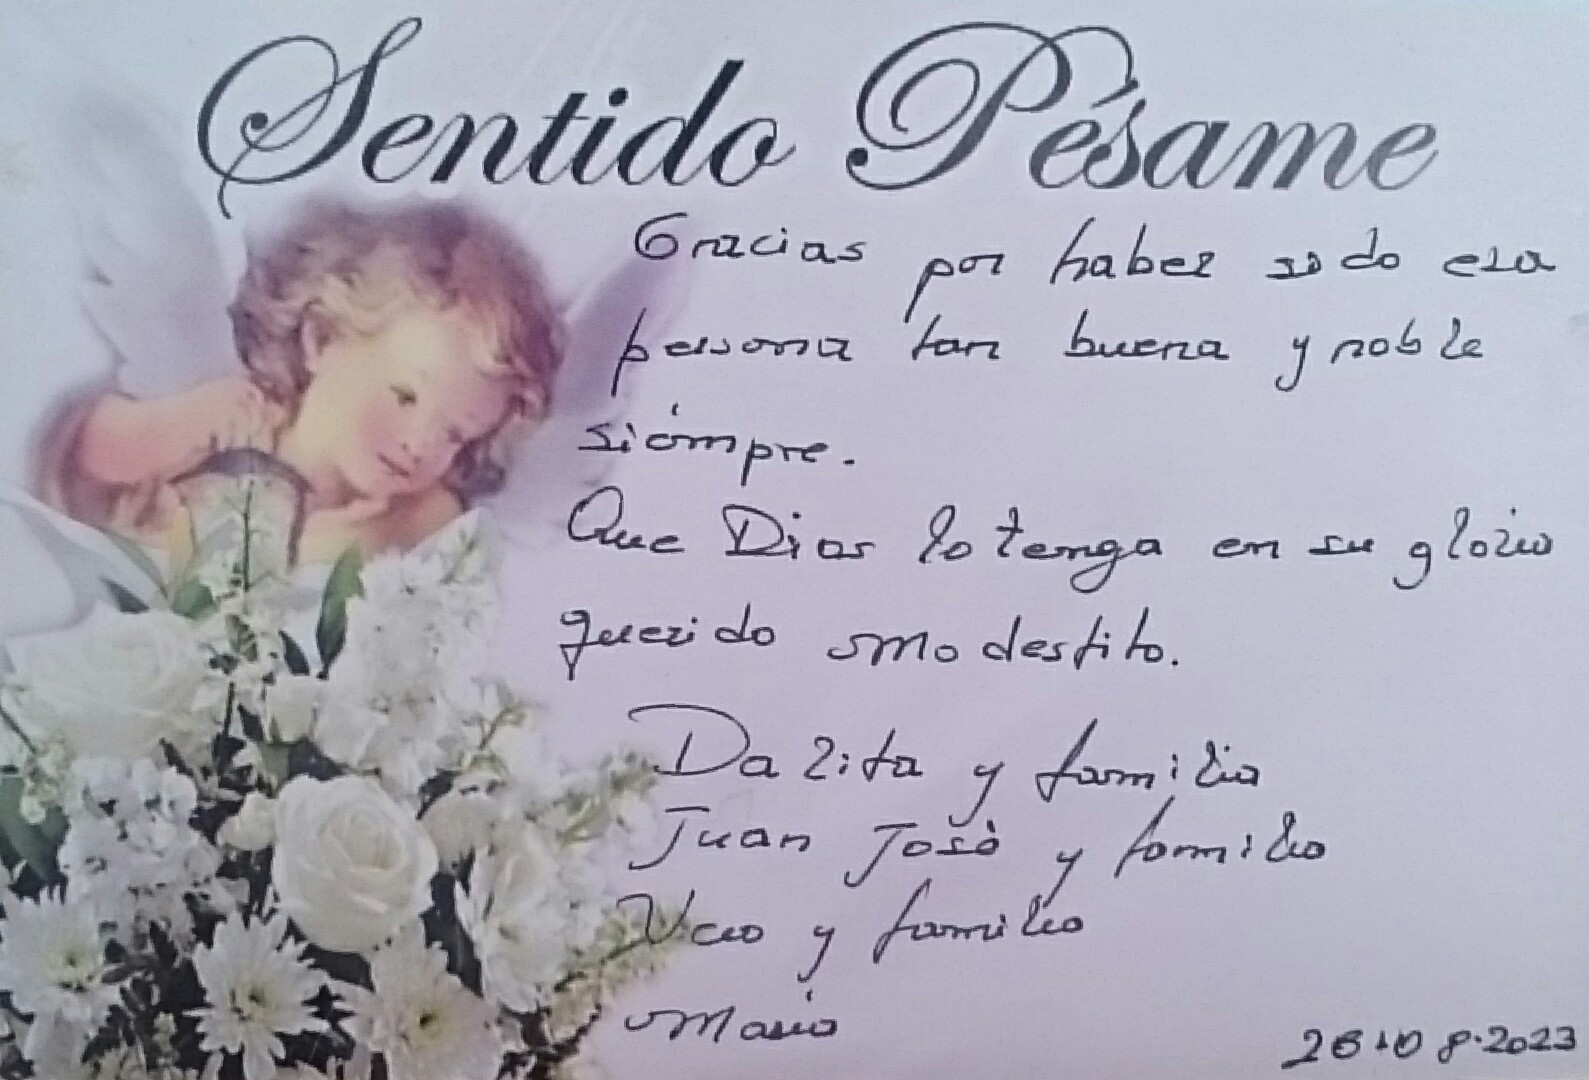 Sentido Pésame
Gracias por haber sido esa
persona tan buena y noble
siempre.
Que Dios lo tenga en su gloria
querido Modestito.
Dalita y familia
Juan José y familia
y familia
2023